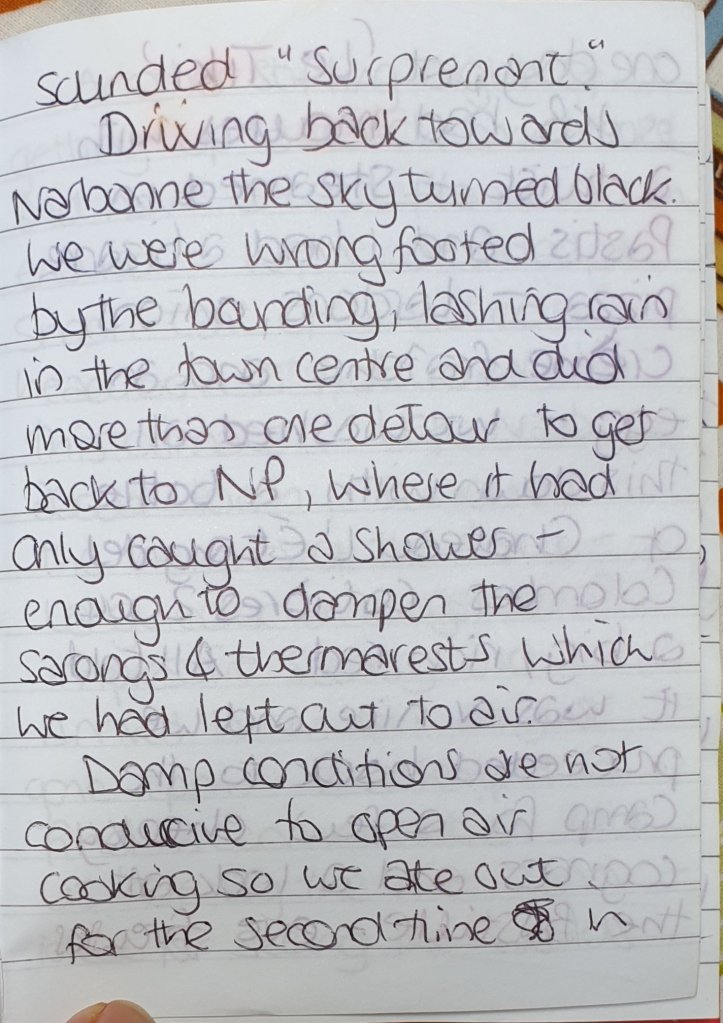 sounded "surprenant."
Driving back towards
Narbonne the sky turned black.
We were wrong footed
by the bounding, lashing rain
in the town centre and did
more than one detour to get
back to NP, where it had
only caught a shower –
enough to dampen the
sarongs & thermarests which
we had left out to air.
Damp conditions are not
conducive to open air
cooking so we ate out
for the second time in